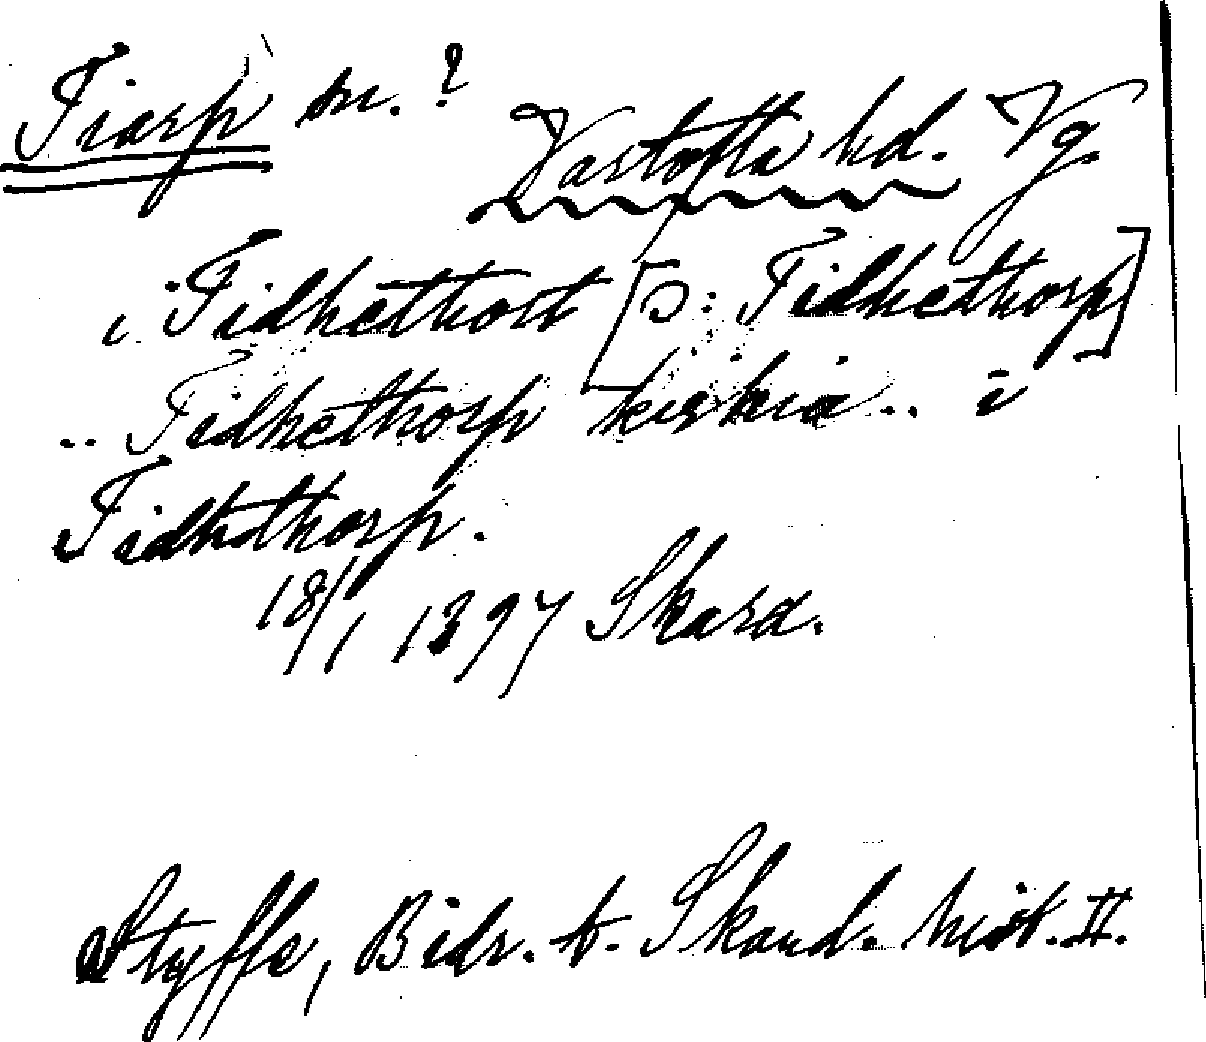 Tiarp sn.?
Vartofta hd. Vg
i Tidhethort [ɔ: Tidhethorp]
.. Tidhethorp kirkia .. i
Tidhethorp.
18/1 1397 Skara.
Styffe, Bidr. t. Skand. hist. II.